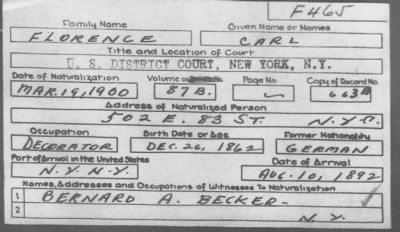 F465
Family Name Given Name or Names
FLORENCE CARL
Title and Location of Court
U. S. DISTRICT COURT, NEW YORK, N.Y.
Date of Naturalization Volume No. Page No. Copy of Record No.
MAR. 19, 1900 87 B.
Address of Naturalized Person
502 E. 83 ST. N.Y.C.
Occupation Birth Date or Age Former Nationality
DECORATOR DEC. 26, 1862 GERMAN
Port of Arrival in the United States Date of Arrival
N.Y. N.Y. AUG. 10, 1892
Names, Addresses and Occupations of Witnesses To Naturalization
1 BERNARD A. BECKER-
2 N.Y.